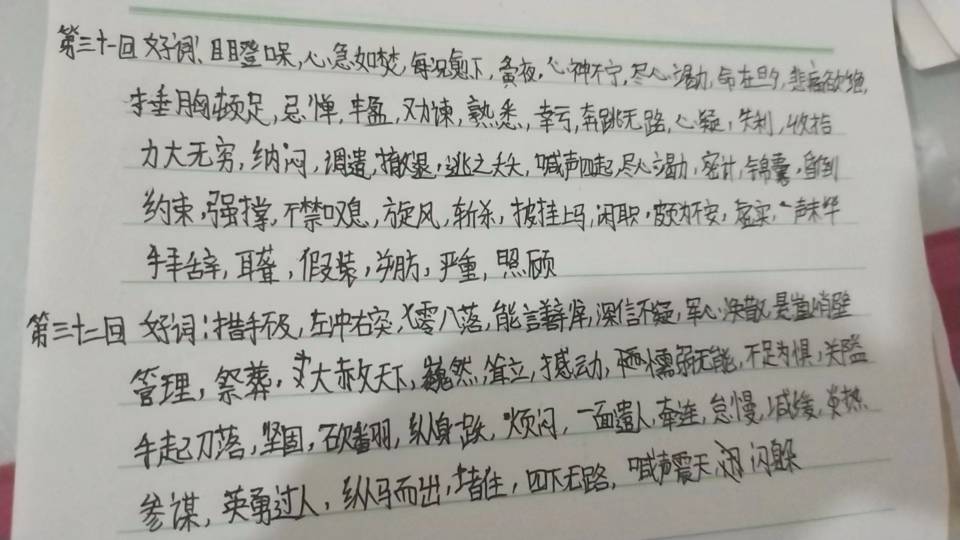 第三十一回 好词、目瞪口呆,心急如焚,每况愈下,黄夜,心神不宁,尽心竭力,命在旦夕,悲痛欲绝,
捶胸顿足,忌惮,丰盈,劝谏,熟悉,幸亏,奔跳无路,心疑,失利,收拾
力大无穷,纳闷,调遣,撤退,逃之夭夭,喊声四起,尽心竭力,密计,锦囊,
约束,强撑,不禁叹息,旋风,斩杀,披挂上马,闲职,颇为不安,虚实,一声未毕
辛,耳聋,假装,严重,照顾
第三十二回 好词:措手不及,左冲右突,七零八落,能言善,深信不疑,军心涣散,悬崖峭壁
管理,祭葬,大赦天下,巍然,耸立,撼动,懦弱无能,不足为惧,关隘
手起刀落,坚固,砍翻,纵身一跃,烦闷,一面遣人,牵连,怠慢,减缓,炎热
参谋,英勇过人,纵马而出,堵住,四下无路,喊声震天,闪躲